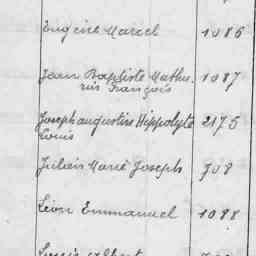 Eugène Marcel 1086
Jean Baptiste Mathu- 1087
rin François
Joseph augustin Hippolyte 2175
Louis
Julien Marie Joseph 708
Léon Emmanuel 1088